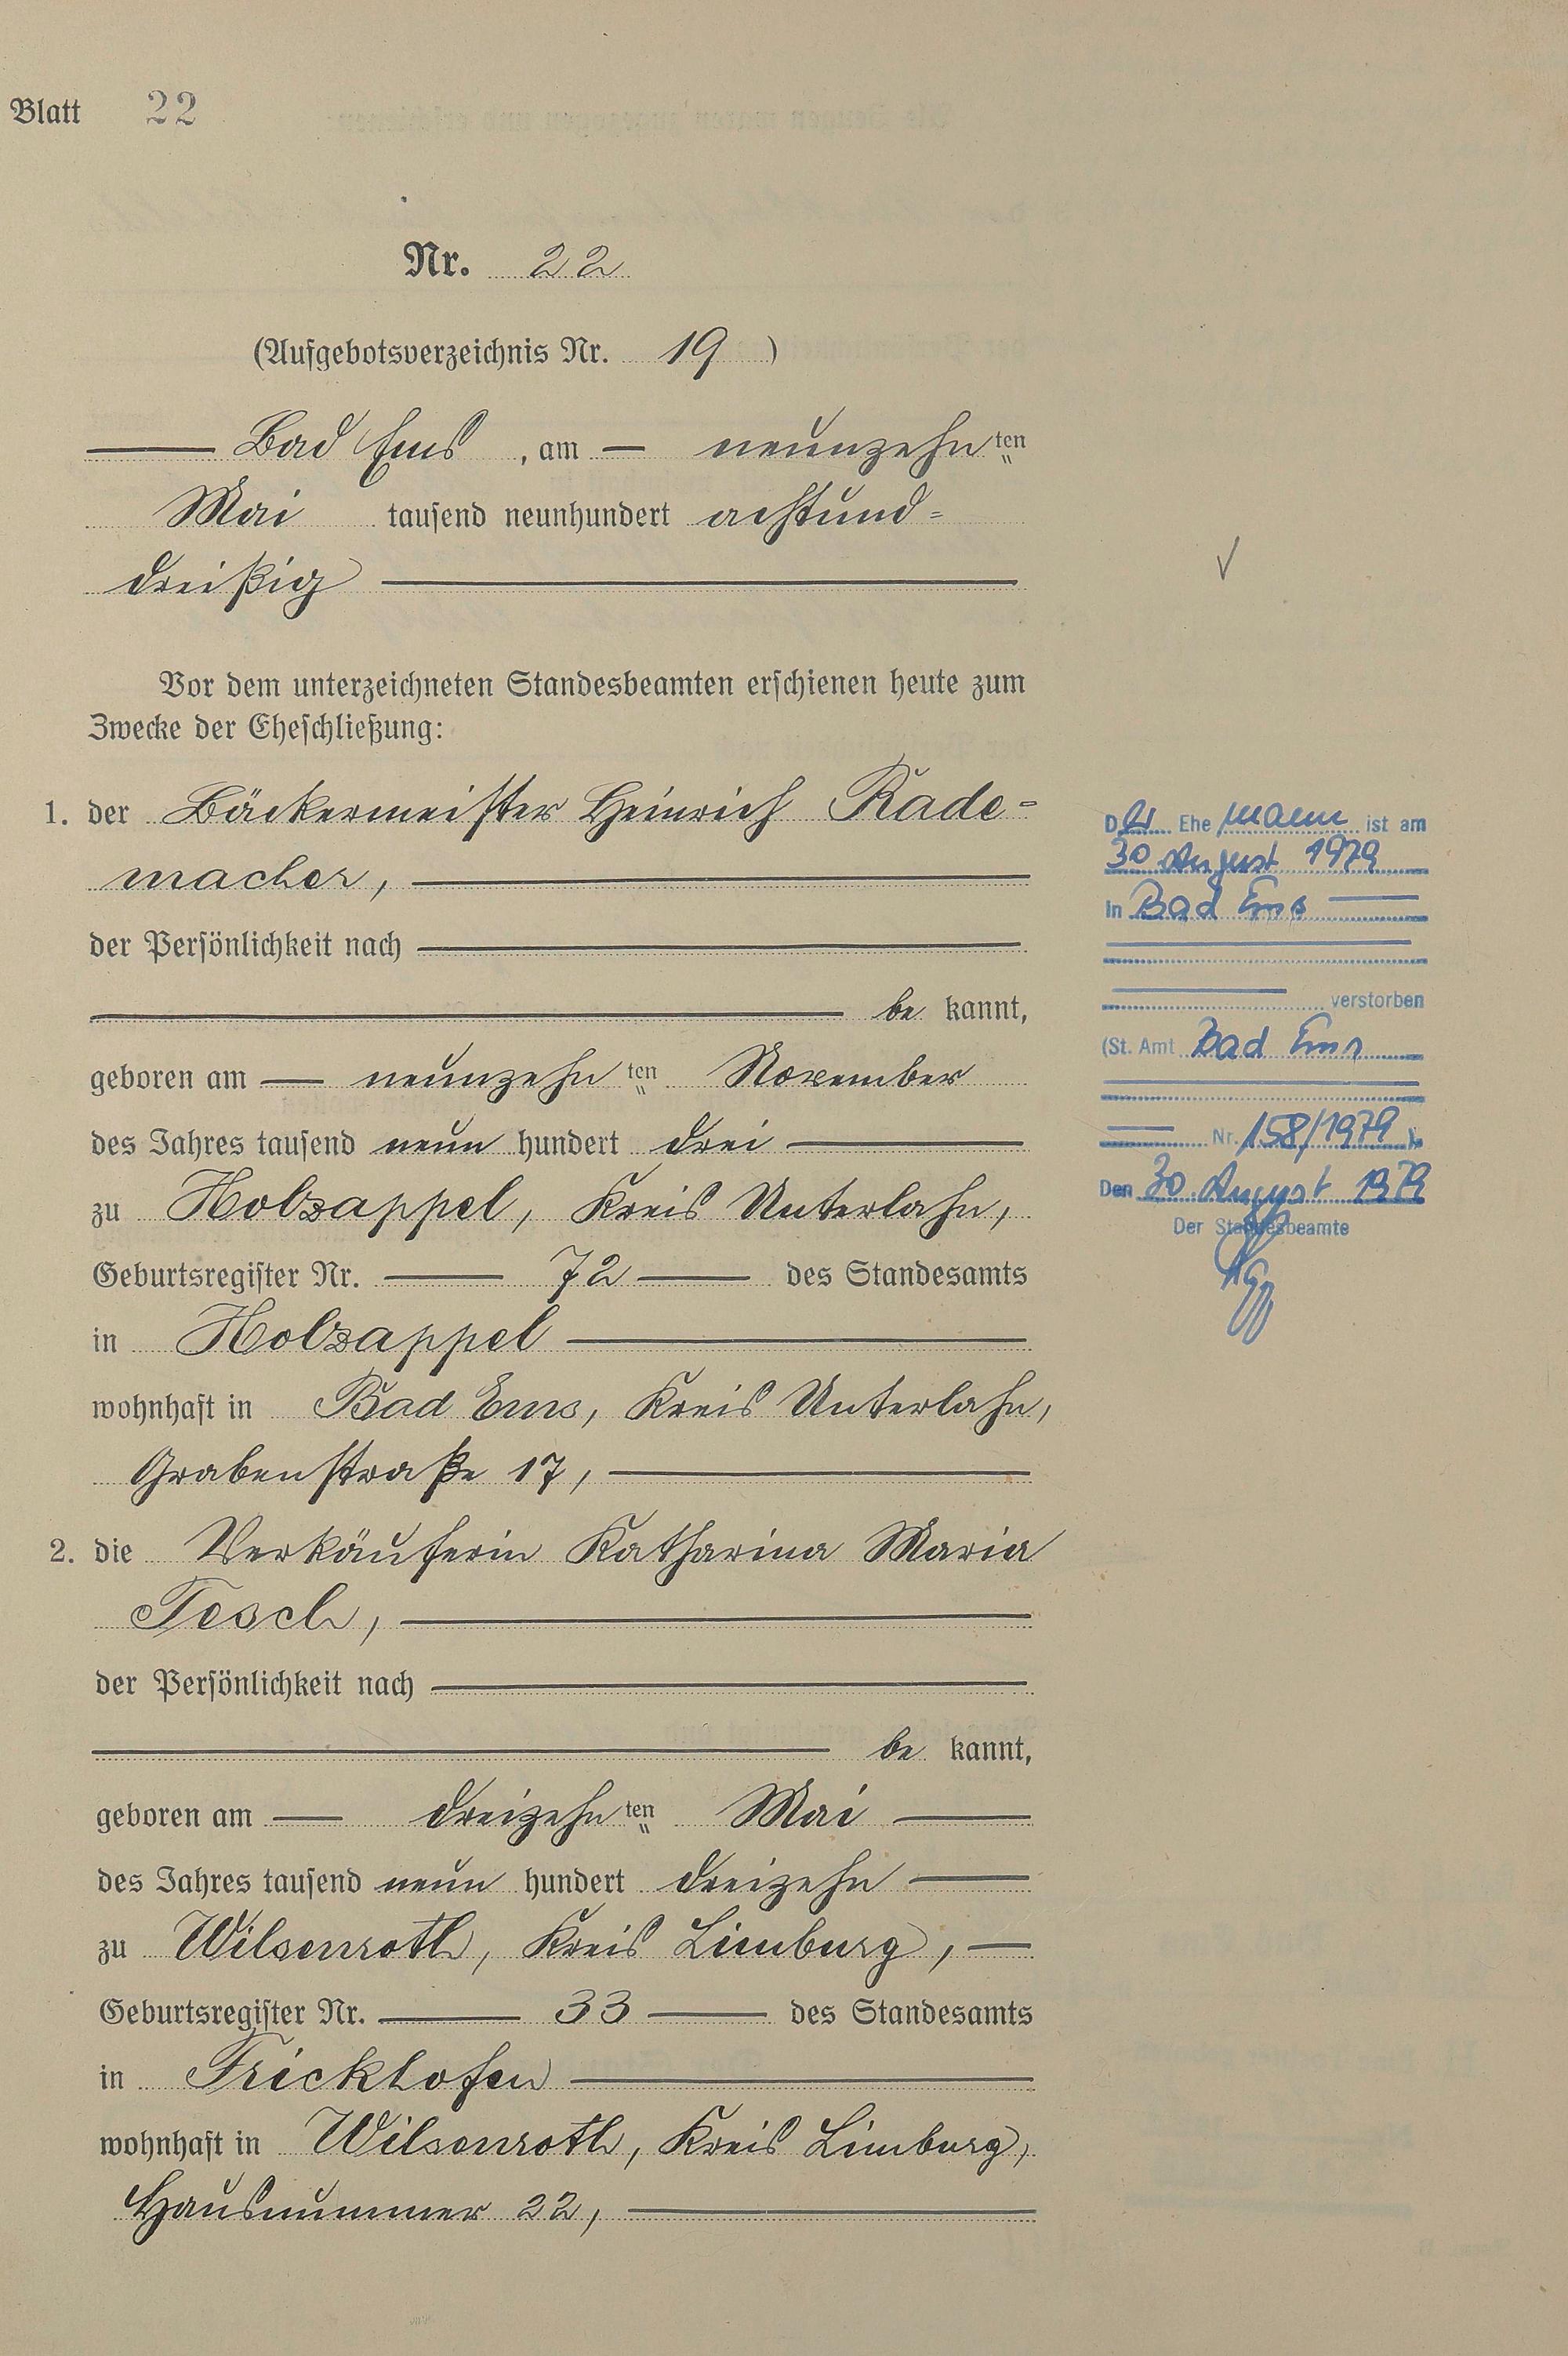 Blatt 22
Nr. 22
(Aufgebotsverzeichnis Nr. 19 )
Bad Ems , am neunzehnten
Mai tausend neunhundert achtund=
dreißig
Vor dem unterzeichneten Standesbeamten erschienen heute zum
Zwecke der Eheschließung:
1. der Bäckermeister Heinrich Rade=
macher,
der Persönlichkeit nach
be kannt,
geboren am neunzehnten November
des Jahres tausend neun hundert drei
zu Holzappel, Kreis Unterlahn,
Geburtsregister Nr. 72 des Standesamts
in Holzappel
wohnhaft in Bad Ems, Kreis Unterlahn,
Grabenstraße 17,
2. die Verkäuferin Katharina Maria
Tesch,
der Persönlichkeit nach
be kannt,
geboren am dreizehnten Mai
des Jahres tausend neun hundert dreizehn
zu Wilsenroth, Kreis Limburg,
Geburtsregister Nr. 33 des Standesamts
in Frickhofen
wohnhaft in Wilsenroth, Kreis Limburg,
Hausnummer 22,
Der Ehe mann ist am
30 August 1979
in Bad Ems
verstorben
(St. Amt Bad Ems
Nr. 158/1979 ).
Den 30. August 1979
Der Standesbeamte